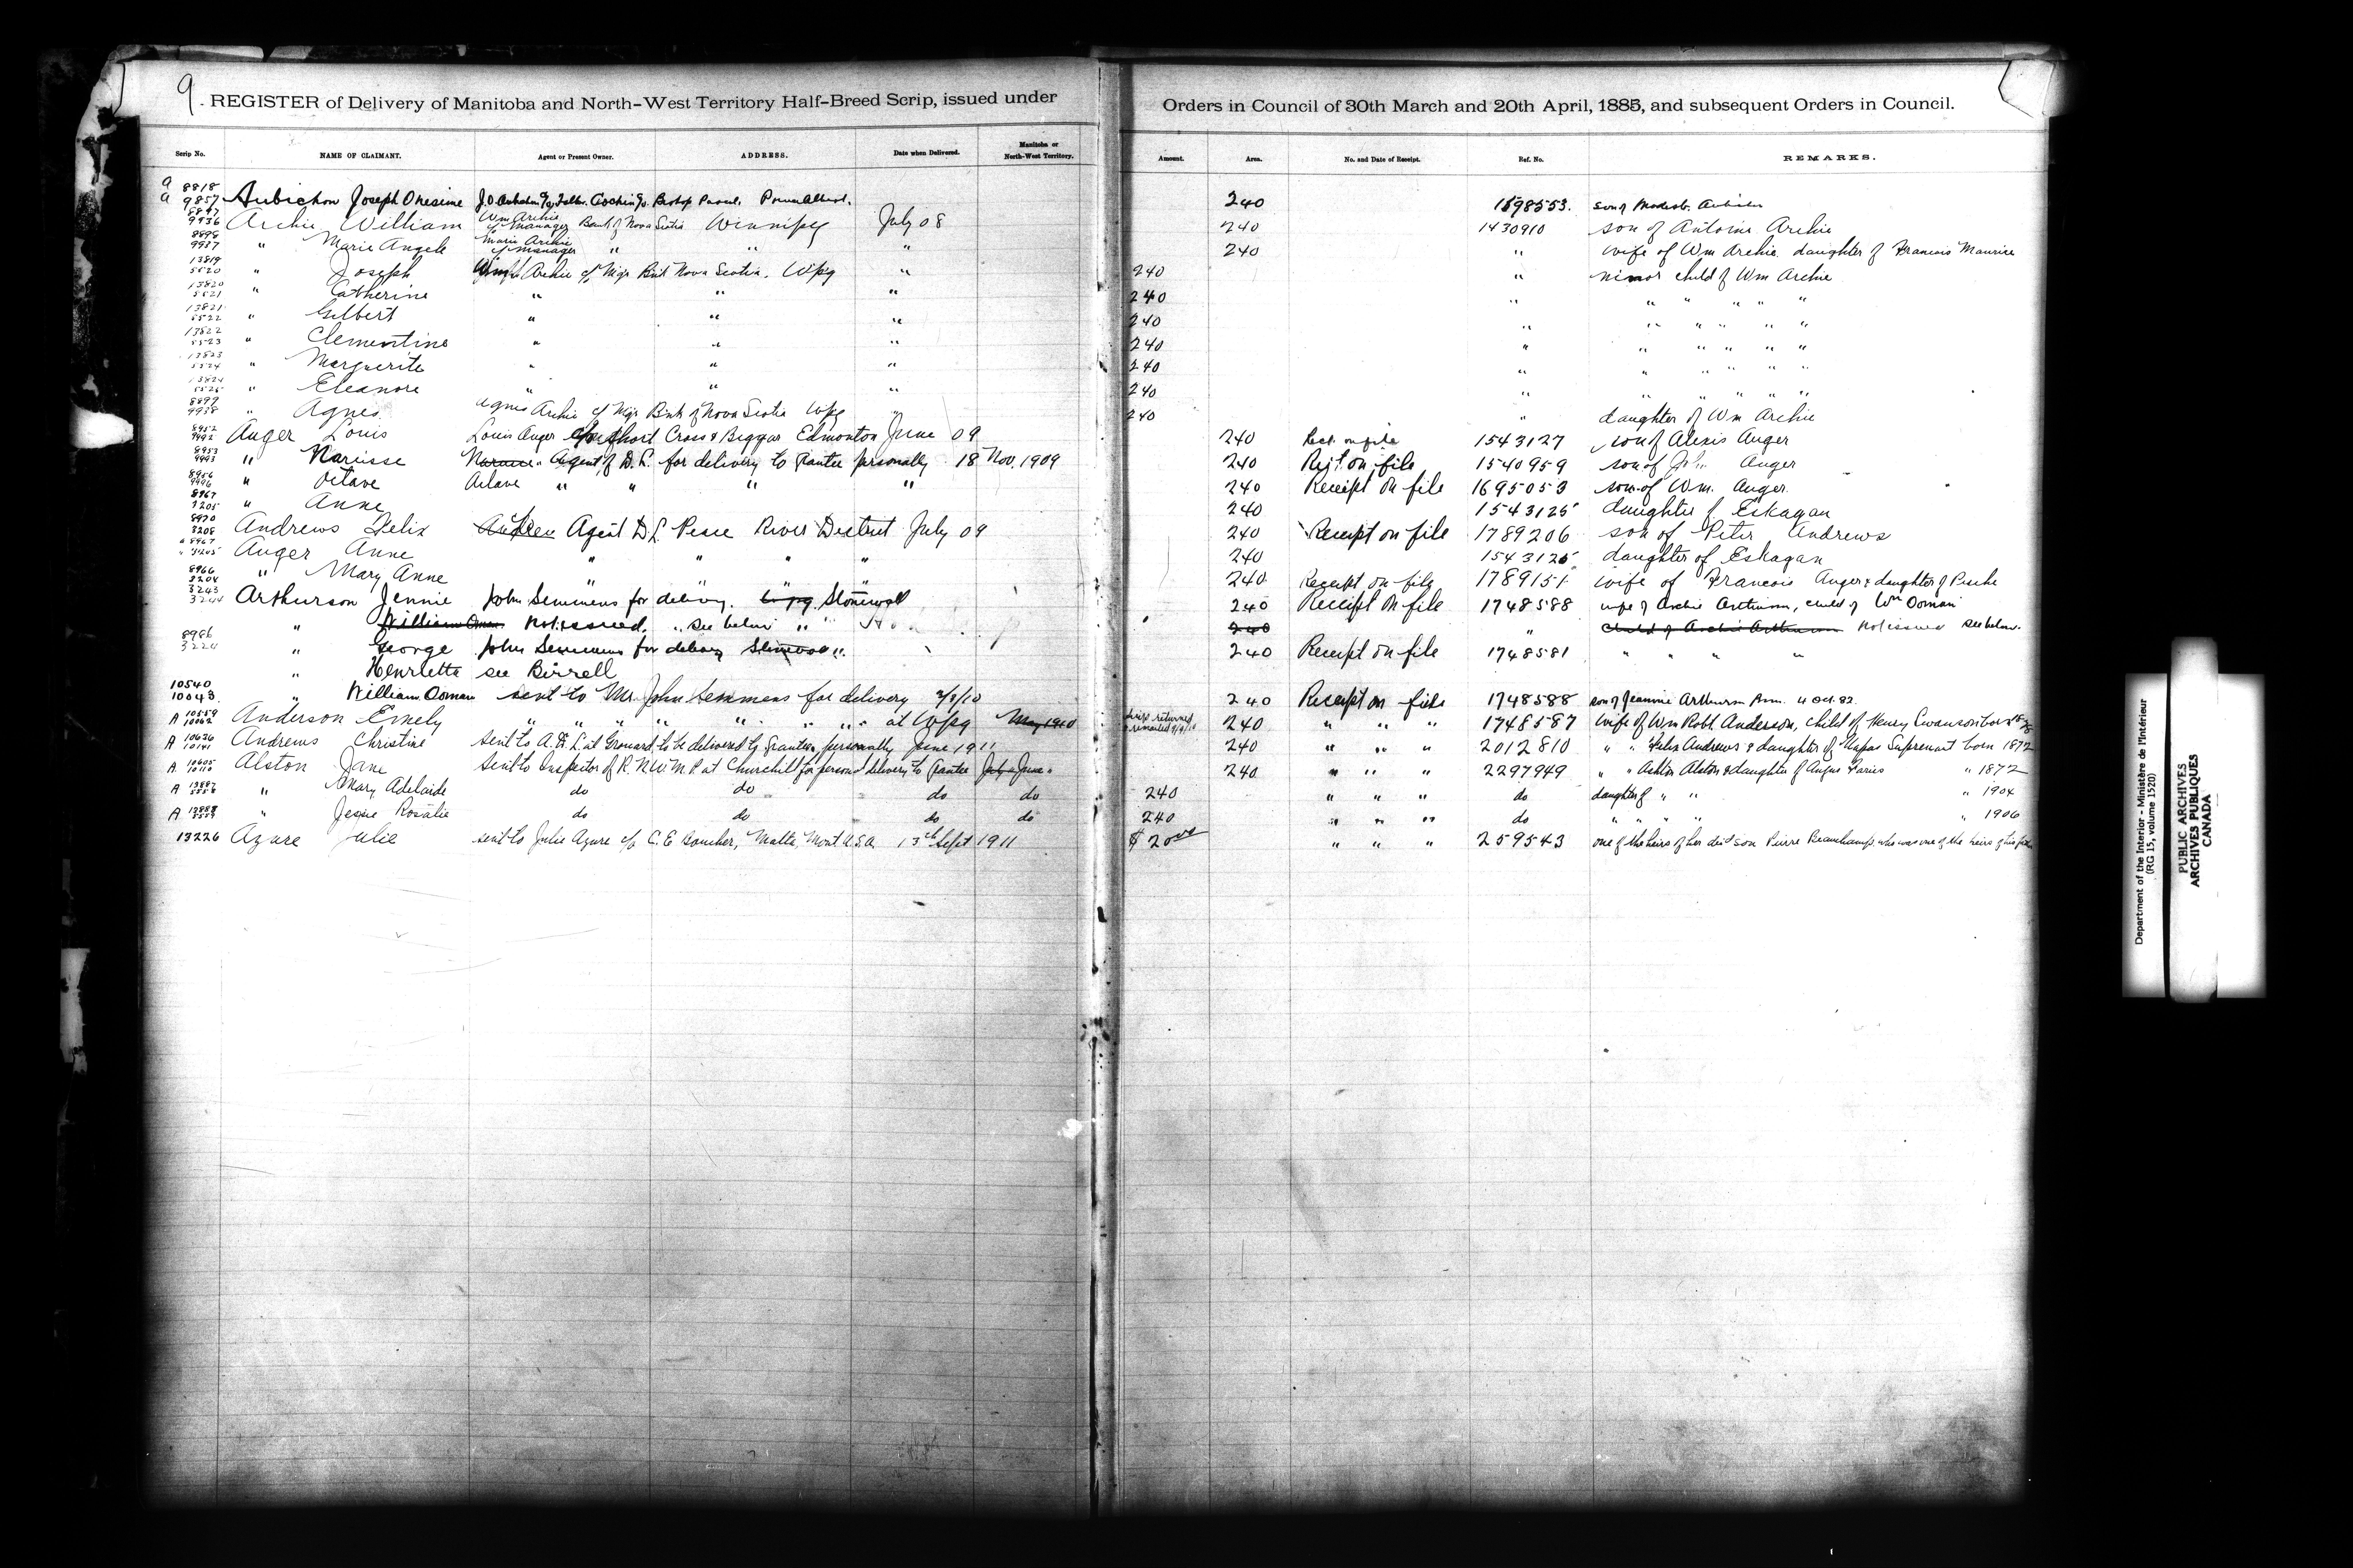 9. REGISTER of Delivery of Manitoba and North-West Territory Half-Breed Scrip, issued under Orders in Council of 30th March and 20th April, 1885, and subsequent Orders in Council.
Scrip No. NAME OF CLAIMANT. Agent or Present Owner. ADDRESS. Date when Delivered. Manitoba or North-West Territory. Amount. Area. No. and Date of Receipt. Ref. No. REMARKS.
a 8818
a 9857 Aubichon Joseph Onesime Bishop Pascal. 240 son of
9936 Archie William Wm Archie c/o Manager Bank of Nova Scotia Winnipeg July 08 240 1430910 son of Antoine Archie
8898
9937 " Marie Angele Marie Archie c/o Manager " " 240 " wife of Wm Archie daughter of Francois Maurice
13819
5520 " Joseph Archie c/o Mgr Bnk Nova Scotia. Wpg " 240 " minor child of Wm Archie
13820
5521 " Catherine " " " 240 " " " " " "
13821
5522 " Gilbert " " " 240 " " " " " "
13822
5523 " Clementine " " " 240 " " " " " "
13823
5524 " Marguerite " " " 240 " " " " " "
13824
5525 " Eleanore " " " 240 " " " " " "
8899
9938 " Agnes Agnes Archie c/o Mgr Bnk of Nova Scotia Wpg " 240 " daughter of Wm Archie
8952
9492 Auger Louis Louis Auger Short Cross & Biggar Edmonton June 09 240 Rect. on file 1543127 son of Alexis Auger
8953
9493 " Narcisse Agent of D.L. for delivery to Grantee personally 18 Nov. 1909 240 Rect. on file 1540959 son of Auger
8956
9496 " Octave Octave " " " " 240 Receipt on file 1695053 son of Wm. Auger.
8967
3205 " Anne 240 1543125 daughter of Eskagan
8970
3208 Andrews Felix Agent D.L. Peace River District July 09 240 Receipt on file 1789206 son of Peter Andrews
" 8967
" 3205 Auger Anne " " " " 240 1543125 daughter of Eskagan
8966
3204 " Mary Anne " " " " 240 Receipt on file 1789151 wife of Francois Auger & daughter of
3243
3244 Arthurson Jennie John Semmens for delivery. Wpg. Stonewall 240 Receipt on file 1748588 wife of Archie Arthurson, child of Wm Oman
" William Oman Not issued, " see below " 240 " child of Archie Arthurson Not issued see below.
8986
3224 " George John Semmens for delivery Stonewall " 240 Receipt on file 1748581 " " " "
" Henrietta see Birrell
10540
10043 " William Oman sent to Mr. John Semmens for delivery 2/3/10 240 Receipt on file 1748588 son of Jeannie Arthurson Born 4 Oct. 82.
A 10559
10062 Anderson Emely " " " " " " " at Wpg May 1910 240 " " " 1748587 wife of Wm Robt. Anderson, child of Henry Swanson
A 10636
10141 Andrews Christine sent to A.D.L. at Grouard to be delivered to Grantee personally June 1911 240 " " " 2012810 " " Felix Andrews & daughter of Napas Suprenant born 1872
A 10605
10110 Alston Jane sent to Inspector of R.N.W.M.P. at Churchill for personal delivery to Grantee 240 " " " 2297949 " " Ashton Alston & daughter of Angus Faries " 1872
A 13887 " Mary Adelaide do do do do 240 " " " do daughter of " " " 1904
A 13888 " Jessie Rosalie do do do do 240 " " " do " " " " " 1906
13226 Azure Julie sent to Julie Azure c/o C.E. Boucher, Malta, Mont. U.S.A. 13th Sept 1911 $20.00 " " " 259543 one of the heirs of her dec'd son Pierre Beauchamp, who was one of the heirs of his
Department of the Interior - Ministère de l'Intérieur
(RG 15, volume 1520)
PUBLIC ARCHIVES
ARCHIVES PUBLIQUES
CANADA